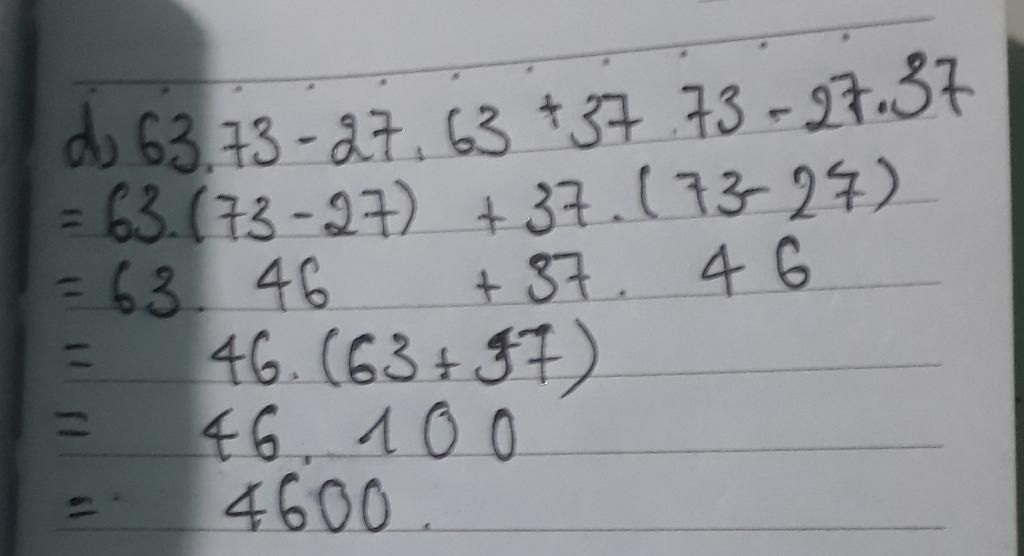 d) 63.73-27.63+37.73-27.37
=63.(73-27)+37.(73-27)
=63.46+37.46
=46.(63+37)
=46.100
=4600.